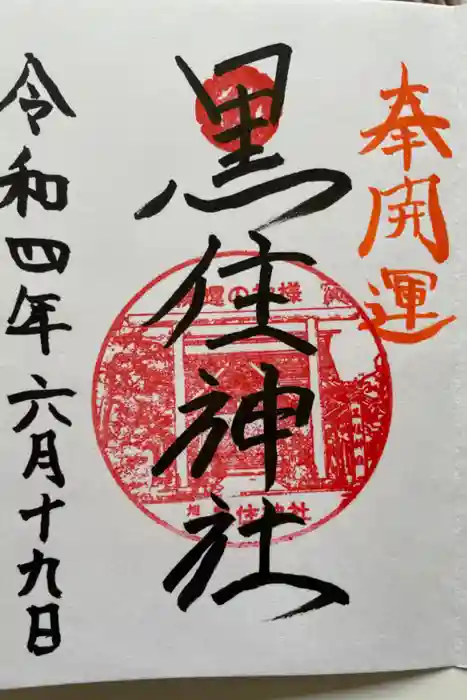 奉開運
黒住神社
の神様
住神社
令和四年六月十九日